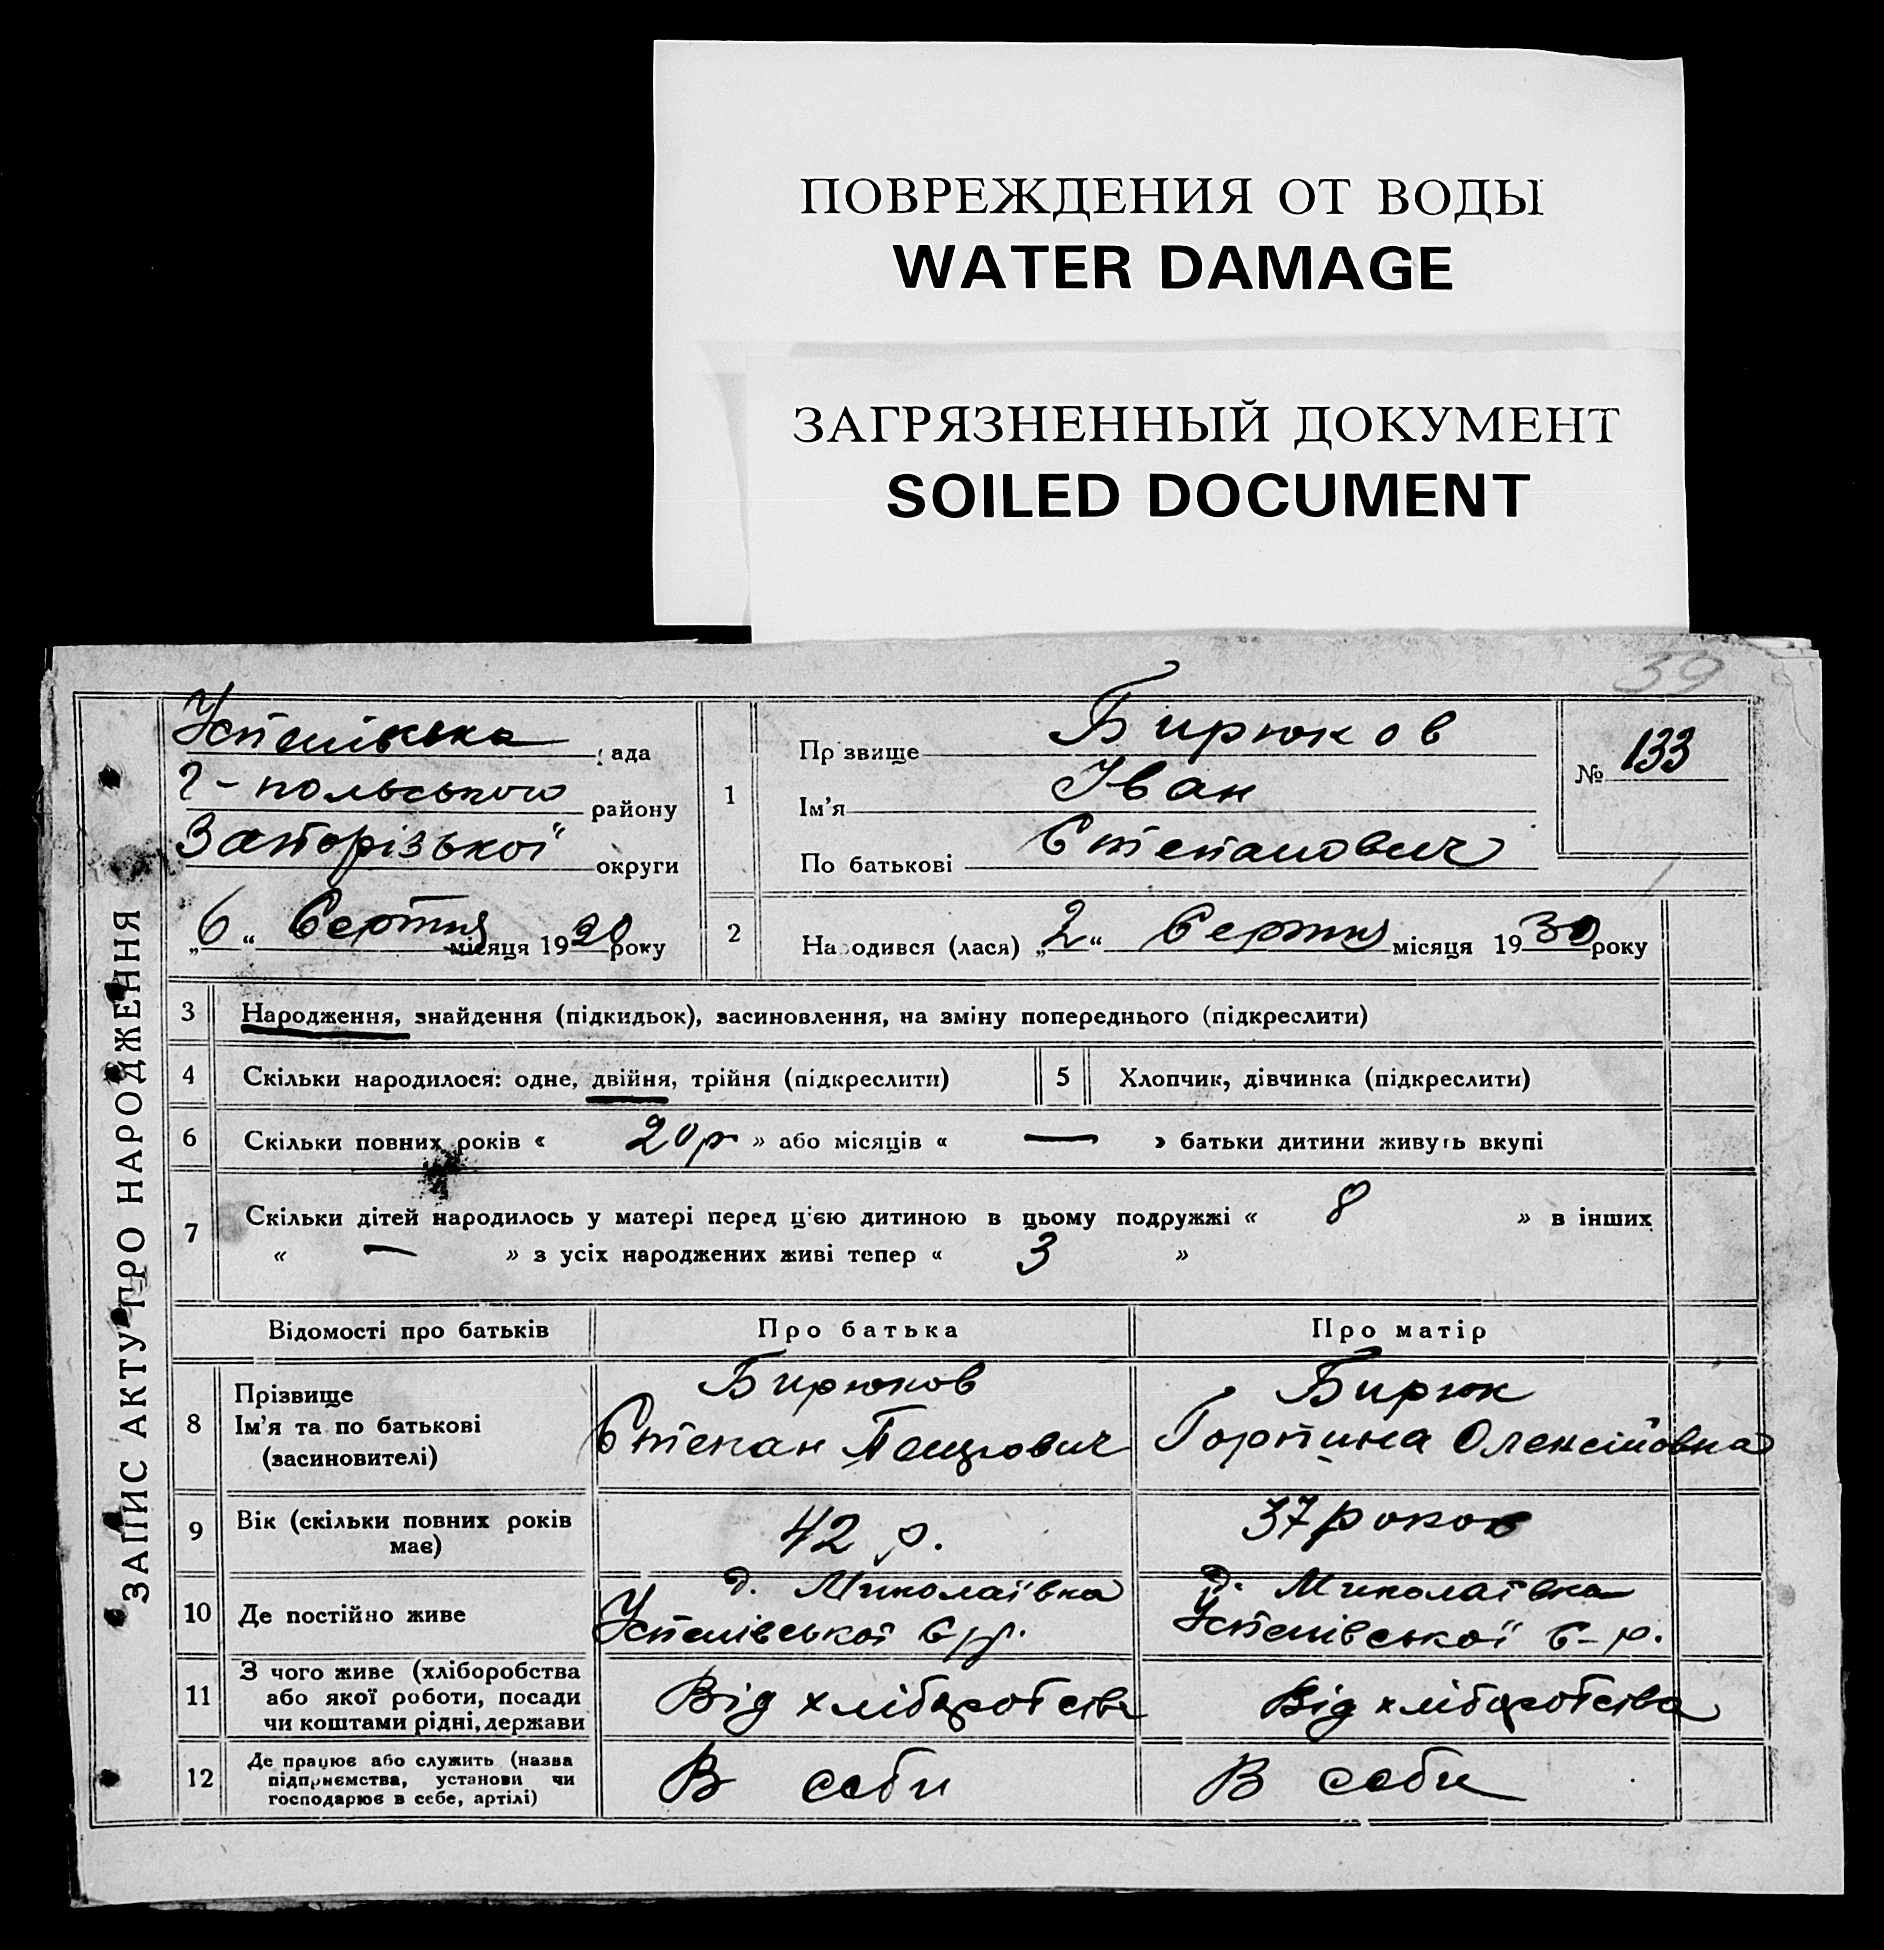 ПОВРЕЖДЕНИЯ ОТ ВОДЫ
WATER DAMAGE
ЗАГРЯЗНЕННЫЙ ДОКУМЕНТ
SOILED DOCUMENT
39
ЗАПИС АКТУ ПРО НАРОДЖЕННЯ
Успенівська рада
Г-польського району
Запорізької округи
„6“ Серпня місяця 1930 року
1
Прізвище Бирюков
Ім'я Іван
По батькові Степанович
№ 133
2
Народився (лася) „2“ Серпня місяця 1930 року
3 Народження, знайдення (підкидьок), засиновлення, на зміну попереднього (підкреслити)
4 Скільки народилося: одне, двійня, трійня (підкреслити) 5 Хлопчик, дівчинка (підкреслити)
6 Скільки повних років « 20 р » або місяців « — » батьки дитини живуть вкупі
7 Скільки дітей народилось у матері перед цією дитиною в цьому подружжі « 8 » в інших
« — » з усіх народжених живі тепер « 3 »
Відомості про батьків Про батька Про матір
8 Прізвище
Ім'я та по батькові
(засиновителі)
Бирюков
Степан
Бирюк
Горпина Олексіївна
9 Вік (скільки повних років
має)
42 р.
37 років
10 Де постійно живе
д. Миколаївка
Успенівської с/р.
д. Миколаївка
Успенівської с-р.
11 З чого живе (хліборобства
або якої роботи, посади
чи коштами рідні, держави
Від хліборобства
Від хліборобства
12 Де працює або служить (назва
підприємства, установи чи
господарює в себе, артілі)
В себи
В себи